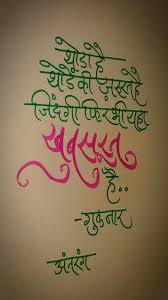 थोडा है
थोडे की ज़रूरत है
ज़िंदगी फिर भी यहा
खुबसुरत
है..
-गुलज़ार
अंतरंग